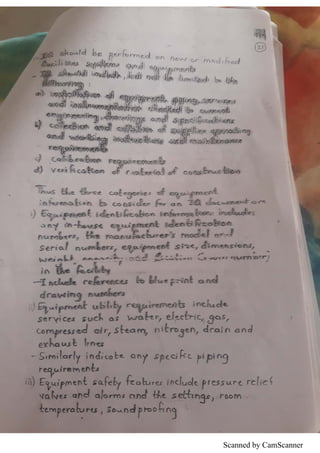 23
- IQ should be performed on new or modified
facilities systems and equipments
- IQ should include, but not be limited to the
following:
a) installation of equipment, piping, services
and instrumentation checked to current
engineering drawings and specifications
b) collection and collation of supplier operating
and working instructions and maintenance
requirements
c) calibration requirements
d) verification of material of construction
Thus the three categories of equipment
information to consider for an IQ document are
i) Equipment identification information includes
any in-house equipment identification
numbers, the manufacturer's model and
serial numbers, equipment size, dimensions,
weight, capacity and location (room number)
in the facility
- Include references to blueprint and
drawing numbers
ii) Equipment utility requirements include
services such as water, electric, gas,
compressed air, steam, nitrogen, drain and
exhaust lines
- Similarly indicate any specific piping
requirements
iii) Equipment safety features include pressure relief
valves and alarms and the settings, room
temperatures, soundproofing
Scanned by CamScanner